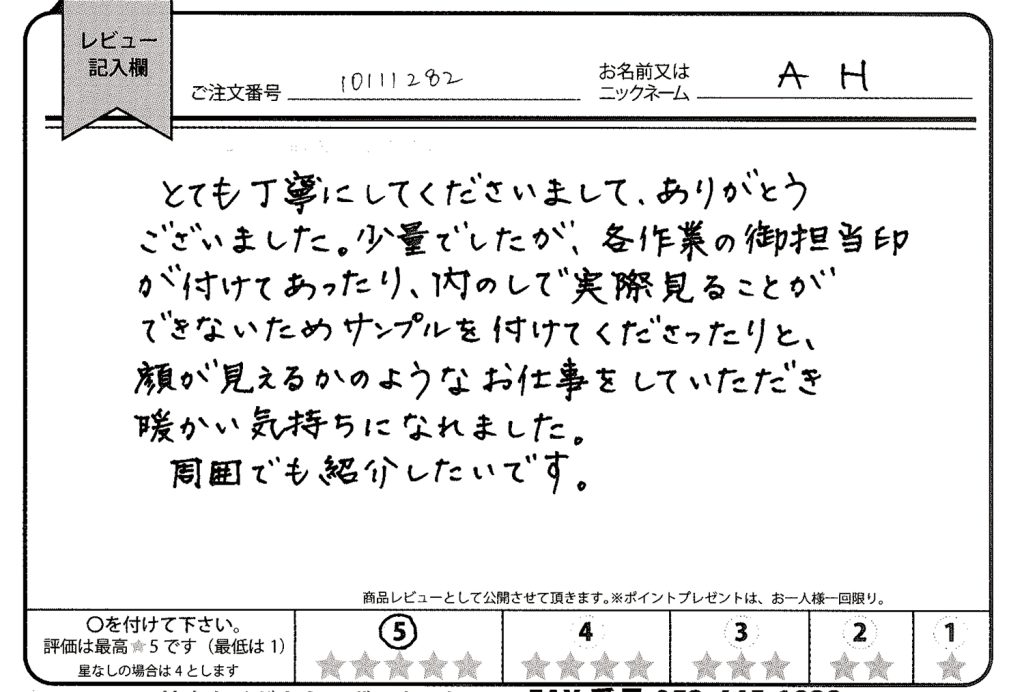 レビュー
記入欄
ご注文番号 10111282
お名前又は
ニックネーム A H
とても丁寧にしてくださいまして、ありがとう
ございました。少量でしたが、各作業の御担当印
が付けてあったり、内のしで実際見ることが
できないためサンプルを付けてくださったりと、
顔が見えるかのようなお仕事をしていただき
暖かい気持ちになれました。
周囲でも紹介したいです。
商品レビューとして公開させて頂きます。※ポイントプレゼントは、お一人様一回限り。
〇を付けて下さい。
評価は最高★5です（最低は1）
星なしの場合は4とします
5 4 3 2 1
★★★★★ ★★★★ ★★★ ★★ ★